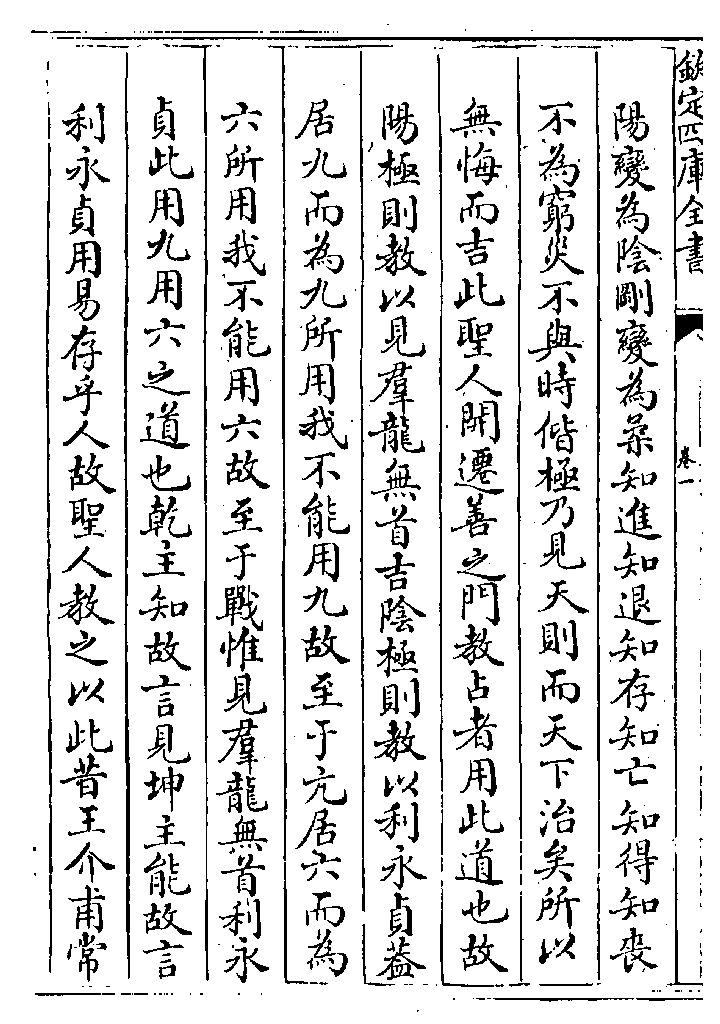 欽定四庫全書
卷一
陽變為陰剛變為柔知進知退知存知亡知得知喪
不為窮災不與時偕極乃見天則而天下治矣所以
無悔而吉此聖人開遷善之門教占者用此道也故
陽極則教以見羣龍無首吉陰極則教以利永貞葢
居九而為九所用我不能用九故至于亢居六而為
六所用我不能用六故至于戰惟見羣龍無首利永
貞此用九用六之道也乾主知故言見坤主能故言
利永貞用易存乎人故聖人教之以此昔王介甫常